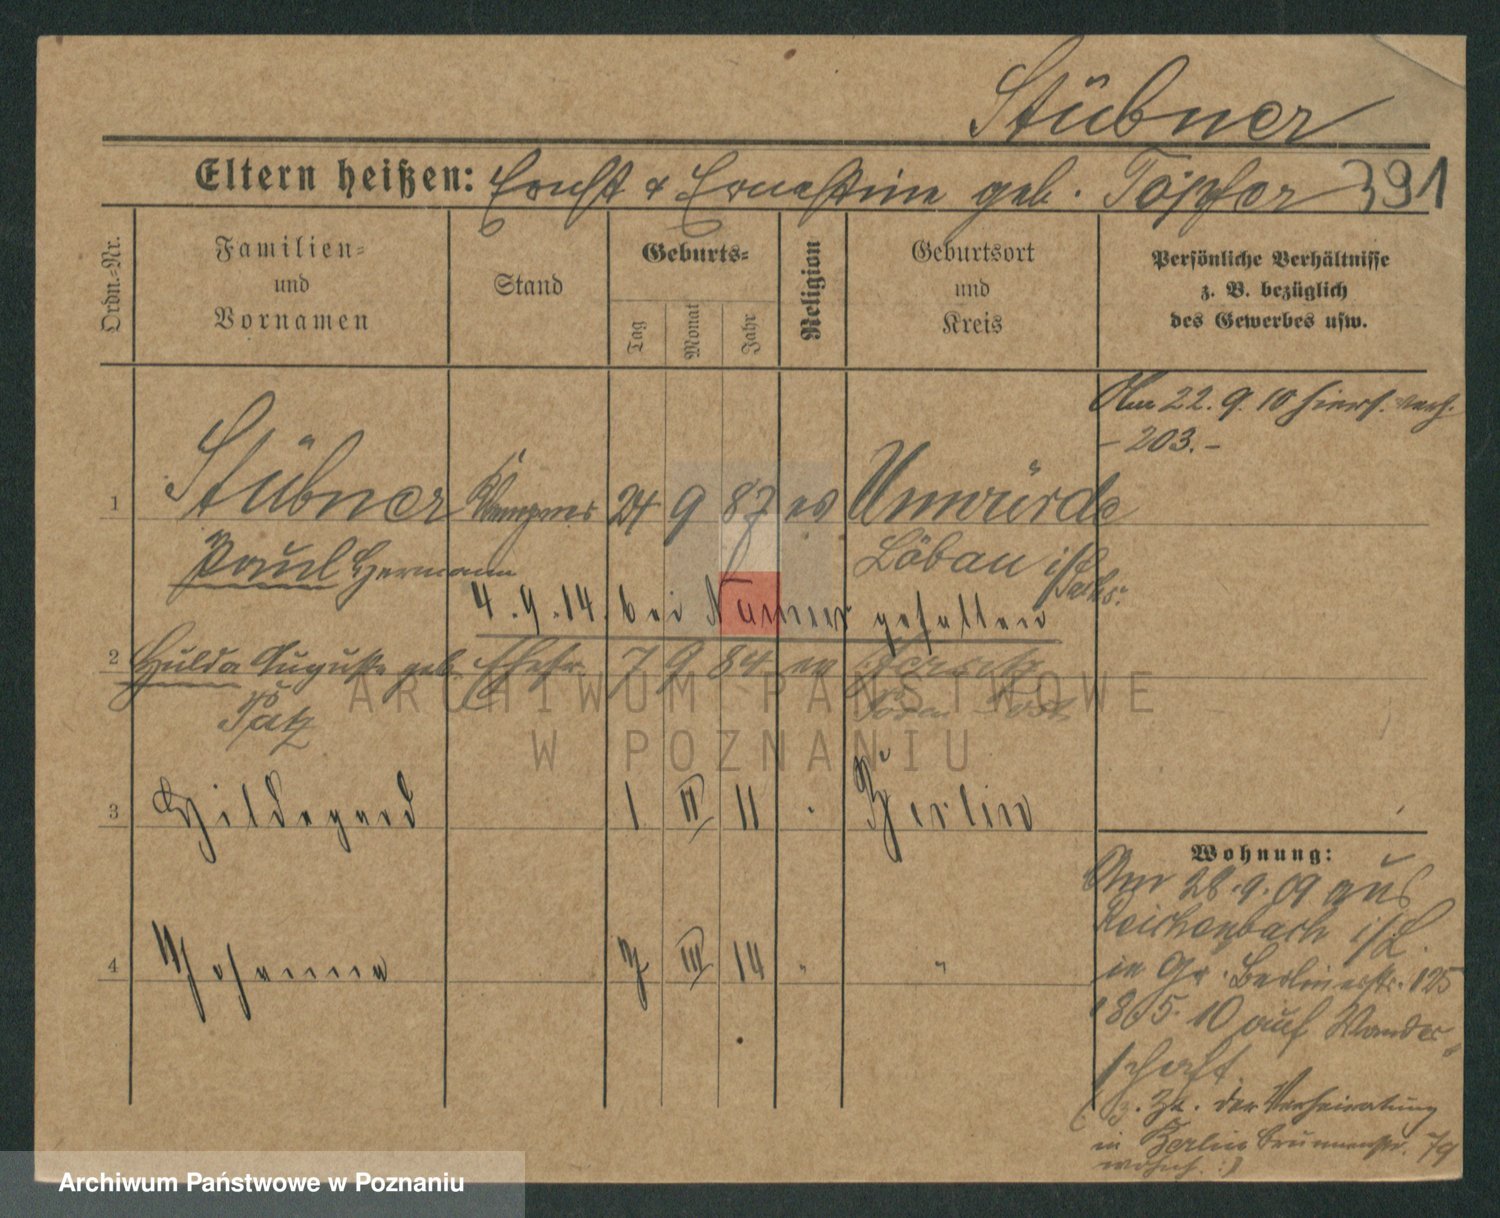 Stübner
Eltern heißen: Ernst & Ernestine geb. Töpfer 391
Ordn.-Nr.
Familien-
und
Vornamen
Stand
Geburts-
Tag
Monat
Jahr
Religion
Geburtsort
und
Kreis
Persönliche Verhältnisse
z. B. bezüglich
des Gewerbes usw.
Am 22. 9. 10 hiers. verh.
- 203. -
1 Stübner 24 9 87 ev Unwürde
Paul Hermann Löbau i/Sachs.
4. 9. 14. bei Namur gefallen
2 Hulda Auguste geb. Ehefr. 7 9 84 ev
Patz
3 Hildegard 1 II 11 Berlin
4 Johanna III 14 " "
Wohnung:
Am 28. 9. 09 aus
Reichenbach i/L.
in Gr. Berlinerstr. 125
18/5. 10 auf Wander-
schaft
(z. Zt. der Verheiratung
in Berlin Brunnenstr. 79
wohnh.:)
ARCHIWUM PAŃSTWOWE
W POZNANIU
Archiwum Państwowe w Poznaniu